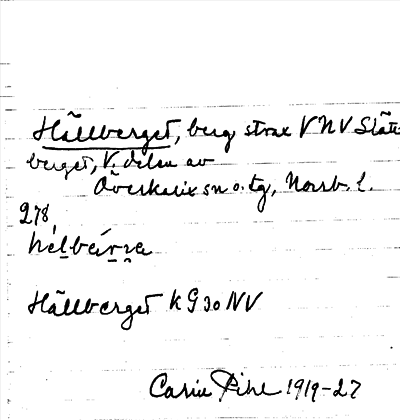 Hällberget, berg strax V N V Slåtte
berget, V. delen av
Överkalix sn o. tg, Norrb. l.
278
Hällberget k G 30 NV
Carin Pihl 1919-27